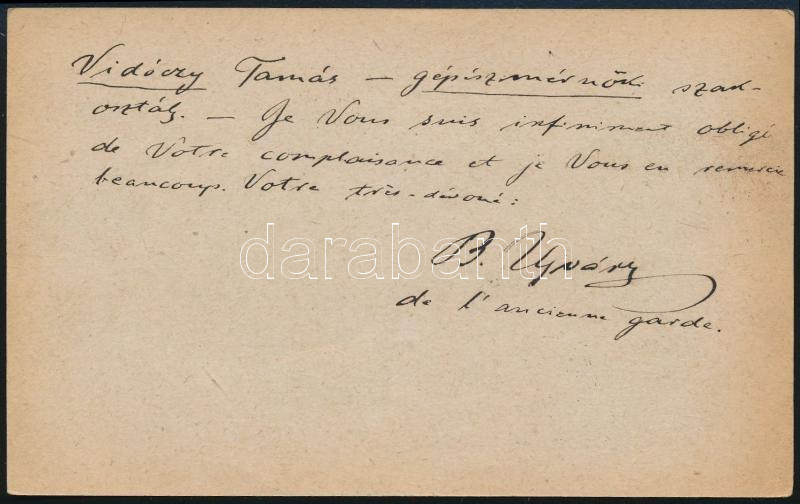 Vidóczy Tamás – gépészmérnöki szak-
osztály. – Je Vous suis infiniment obligé
de Votre complaisance et je Vous en remercie
beaucoup. Votre très-dévoué:
darabanth
B. Ujváry
de l'ancienne garde.